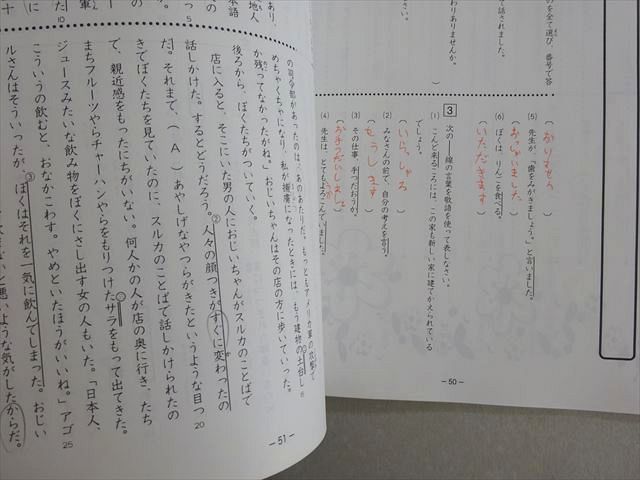 のを全て選び、番号で答
話されました。
わりありませんか。
(5) 先生が、「歯をみがきましょう。」と言いました。
おっしゃいました
(6) ぼくは、りんごを食べる。
いただきます
3 次の――線の言葉を敬語を使って表しなさい。
(1) こんど来るころには、この家も新しい家に建てかえられている
でしょう。
いらっしゃる
(2) みなさんの前で、自分の考えを言う。
もうします
(3) その仕事、手つだおうか。
お手つだいしましょうか
(4) 先生は、とてもよろこんでいました。
―50―
の司令部があったのは、あのあたりだ。もっともアメリカ軍の攻撃で
めちゃくちゃになり、私が捕虜になったときには、もう建物の土台し
か残ってなかったがね。」おじいちゃんはその店の方に歩いていった。
後ろから、ぼくたちがついていく。
店に入ると、そこにいた男の人におじいちゃんがスルカのことばで
話しかけた。するとどうだろう。②人々の顔つきがすぐに変わったの
だ。それまで、( A )あやしげなやつらがきたというような目つ
きでぼくたちを見ていたのに、スルカのことばで話しかけられたの
で、親近感をもったにちがいない。何人かの人が店の奥に行き、たち
まちフルーツやらチャーハンやらをもりつけたサラをもって出てきた。
ジュースみたいな飲み物をぼくにさし出す女の人もいた。「日本人、
こういうの飲むと、おなかこわす。やめといたほうがいいね。」アゴ
ルさんはそういったが、③ぼくはそれを一気に飲んでしまった。おじい
悪いような気がしたからだ。
5
10
15
20
25
―51―